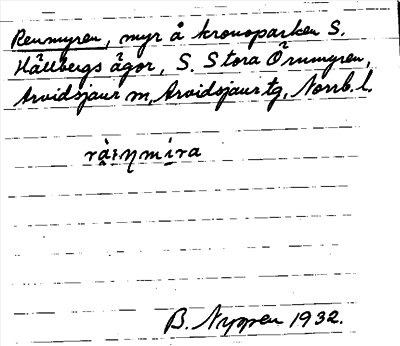 Renmyren, myr å kronoparken S.
Hällbergs ägor, S. Stora Örnmyren,
Arvidsjaur sn, Arvidsjaurs tg, Norrb. l.
B. Nygren 1932.